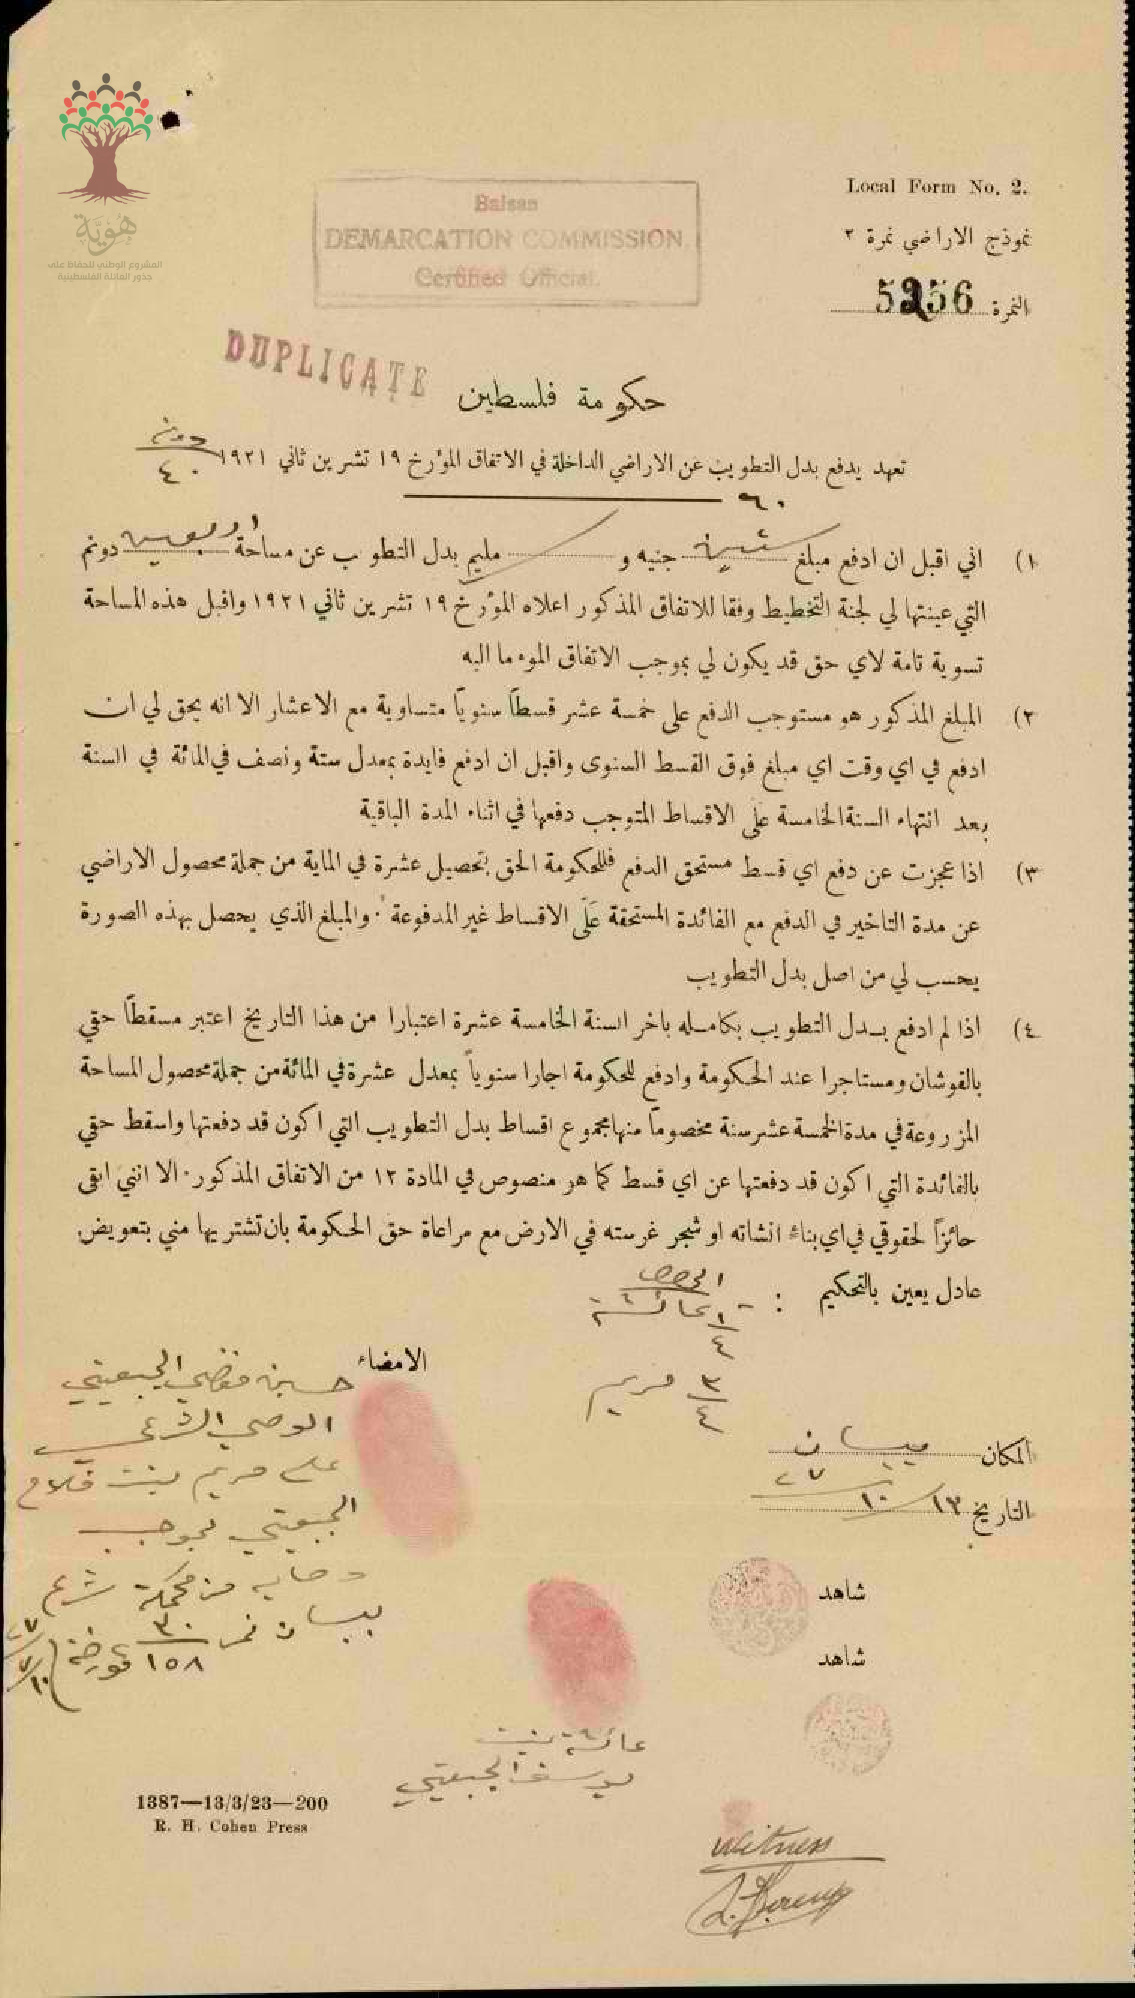 هُوِيَّة
المشروع الوطني للحفاظ على
جذور العائلة الفلسطينية
Local Form No. 2.
نموذج الاراضي نمرة ٢
النمرة 5256
Baisan
DEMARCATION COMMISSION
Certified Official.
DUPLICATE
حكومة فلسطين
دونم
٤٠
تعهد يدفع بدل التطويب عن الاراضي الداخلة في الاتفاق المؤرخ ١٩ تشرين ثاني ١٩٢١
٦٠
١) اني اقبل ان ادفع مبلغ ستين جنيه و مليم بدل التطويب عن مساحة اربعين دونم
التي عينتها لي لجنة التخطيط وفقا للاتفاق المذكور اعلاه المؤرخ ١٩ تشرين ثاني ١٩٢١ واقبل هذه المساحة
تسوية تامة لاي حق قد يكون لي بموجب الاتفاق الموء ما اليه
٢) المبلغ المذكور هو مستوجب الدفع على خمسة عشر قسطاً سنوياً متساوية مع الاعشار الا انه يحق لي ان
ادفع في اي وقت اي مبلغ فوق القسط السنوى واقبل ان ادفع فايدة بمعدل ستة ونصف في المائة في السنة
بعد انتهاء السنة الخامسة على الاقساط المتوجب دفعها في اثناء المدة الباقية
٣) اذا عجزت عن دفع اي قسط مستحق الدفع فللحكومة الحق بتحصيل عشرة في الماية من جملة محصول الاراضي
عن مدة التاخير في الدفع مع الفائدة المستحقة على الاقساط غير المدفوعة . والمبلغ الذي يحصل بهذه الصورة
يحسب لي من اصل بدل التطويب
٤) اذا لم ادفع بدل التطويب بكامله باخر السنة الخامسة عشرة اعتبارا من هذا التاريخ اعتبر مسقطاً حقي
بالقوشان ومستاجرا عند الحكومة وادفع للحكومة اجارا سنوياً بمعدل عشرة في المائة من جملة محصول المساحة
المزروعة في مدة الخمسة عشر سنة مخصوماً منها مجموع اقساط بدل التطويب التي اكون قد دفعتها واسقط حقي
بالفائدة التي اكون قد دفعتها عن اي قسط كما هو منصوص في المادة ١٢ من الاتفاق المذكور . الا انني ابقى
حائزاً لحقوقي في اي بناء انشاته او شجر غرسته في الارض مع مراعاة حق الحكومة بان تشتريها مني بتعويض
عادل يعين بالتحكيم :
الحصص
١/٤ عائشة
٣/٤ مريم
الامضاء
الوصي الشرعي
على مريم بنت فلاح
بموجب
وصاية من محكمة شرع
بيسان نمر ٣٠/١٥٨ مورخة ١٠/٧/٢٧
المكان بيسان
التاريخ ١٣/١٠/٢٧
شاهد
شاهد
عائشة بنت
يوسف
1387—13/3/23—200
R. H. Cohen Press
Witness